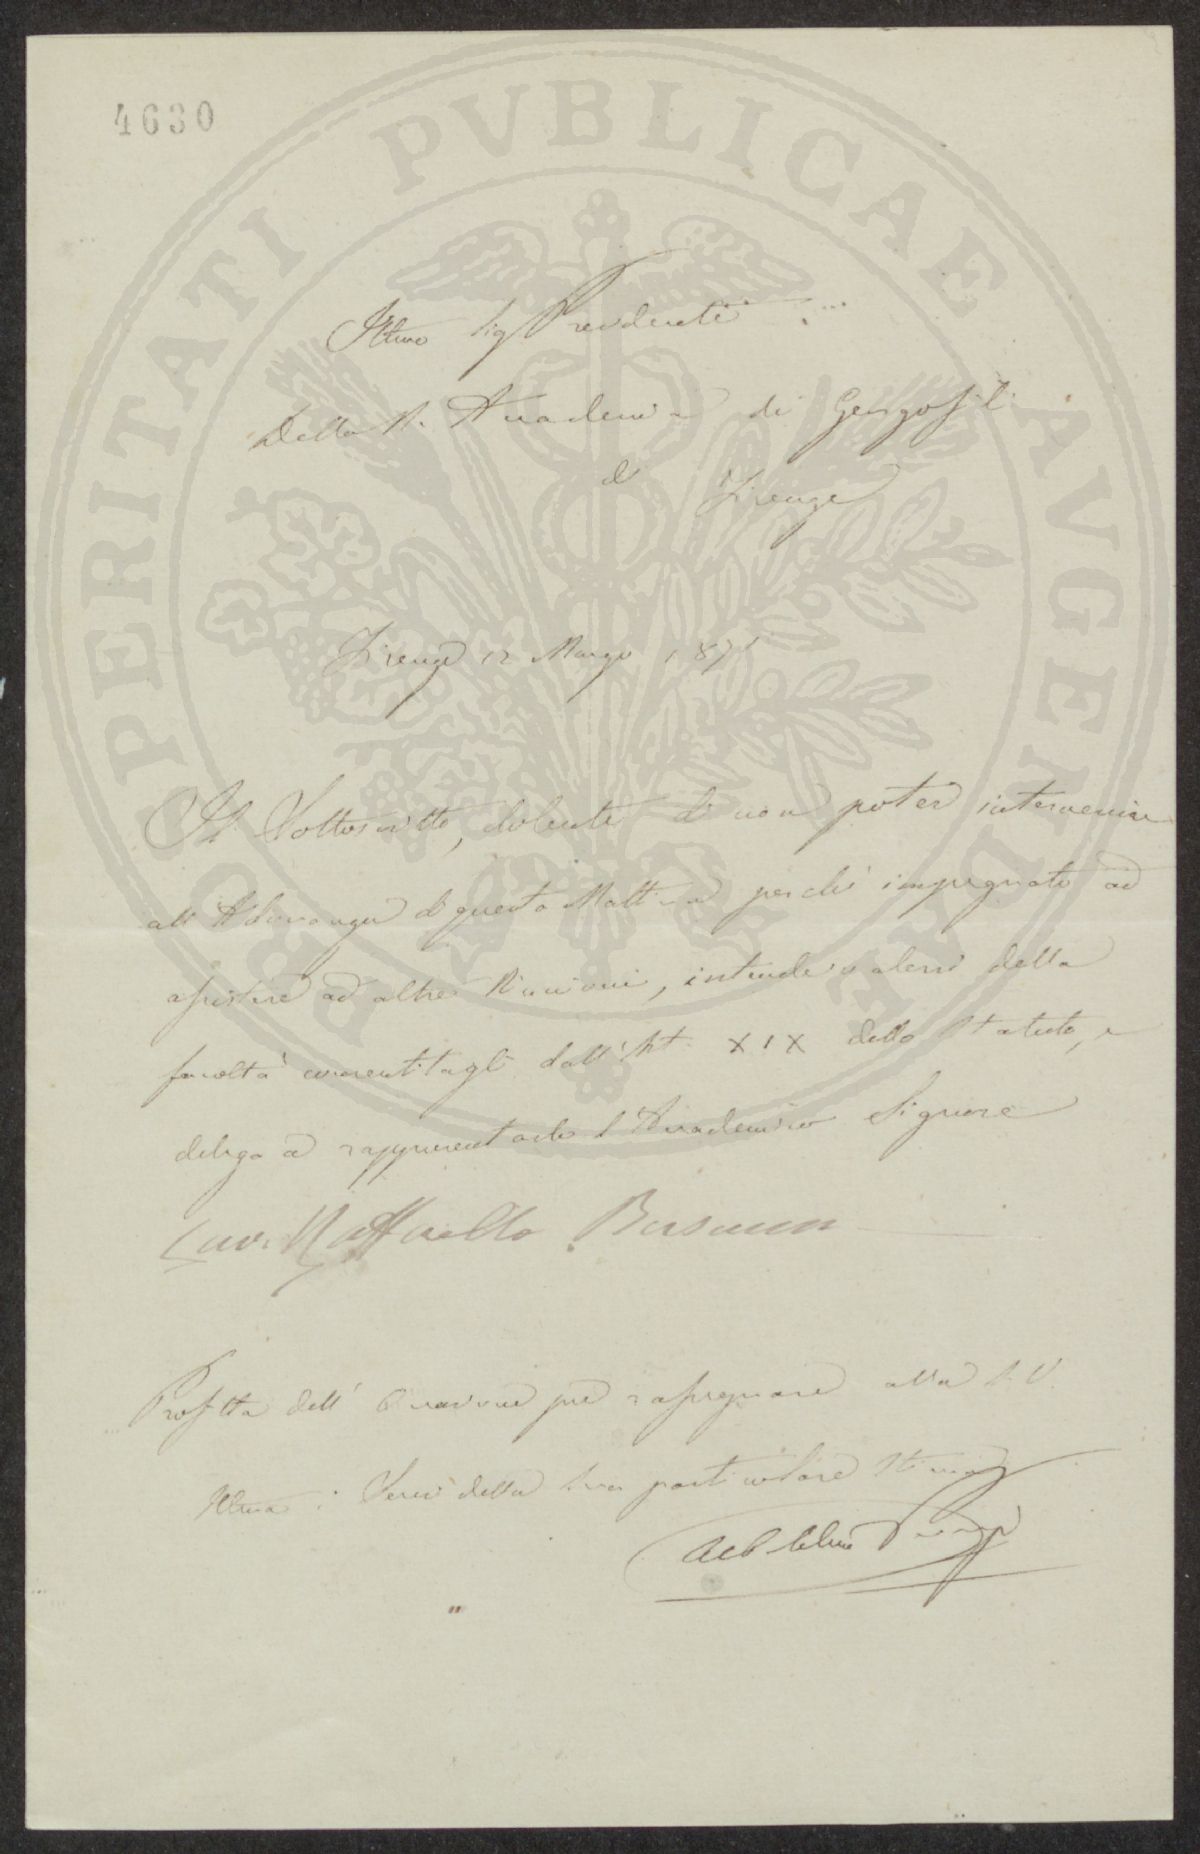 4630
PROSPERITATI PVBLICAE AVGENDAE
Illmo Sig Presidente
Della R. Accademia di Georgofili
di Firenze
Firenze 12 Marzo 1871
Il Sottoscritto, dolente di non poter intervenire
all'Adunanza di questa Mattina perchè impegnato ad
assistere ad altre Riunioni, intende valersi della
facoltà consentitagli dall'Art. XIX dello Statuto, e
delega a rappresentarlo l'Accademico Signore
Cav. Raffaello
Profitta dell'Occasione per rassegnare alla S. V.
Illma i Sensi della Sua particolare Stima